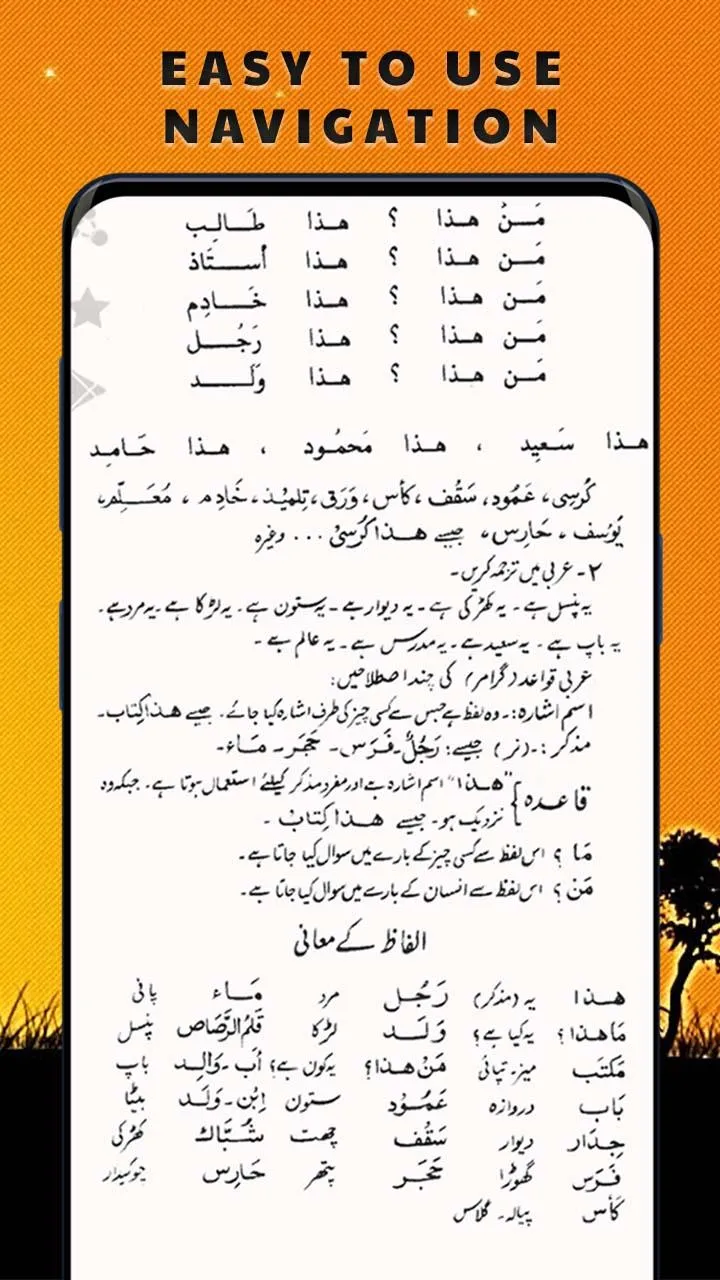 EASY TO USE
NAVIGATION
مَـنْ هـذا ؟ هـذا طَـالِـب
مَـن هـذا ؟ هـذا أُسـتَاذ
مَـن هـذا ؟ هـذا خَـادِم
مَـن هـذا ؟ هـذا رَجُـل
مَـن هـذا ؟ هـذا وَلَـد
هـذا سَـعِيد ، هـذا مَحمُـود ، هـذا حَـامِـد
كُرسِى، عَمُود، سَقُف، كأس، وَرَق، تِلمِيذ، خَادِم، مُعَـلِّم،
يُوسف، حَارِس، جیسے هـذا كُرسِىْ ... وغیرہ
۲۔ عربی میں ترجمہ کریں۔
یہ پنسل ہے۔ یہ کھڑکی ہے۔ یہ دیوار ہے۔ یہ ستون ہے۔ یہ لڑکا ہے۔ یہ مرد ہے۔
یہ باپ ہے۔ یہ سعید ہے۔ یہ مدرس ہے۔ یہ عالم ہے۔
عربی قواعد (گرامر) کی چند اصطلاحیں:
اسم اشارہ:۔ وہ لفظ ہے جس سے کسی چیز کی طرف اشارہ کیا جائے۔ جیسے هـذا كِتاب۔
مذکر:۔ (نر) جیسے: رَجُلٌ۔ فَـرَس۔ حَجَر۔ مَـاء۔
قاعدہ } "هـذا" اسم اشارہ ہے اور مفرد مذکر کیلئے استعمال ہوتا ہے۔ جبکہ وہ
نزدیک ہو۔ جیسے هـذا كِتابٌ۔
مَا ؟ اس لفظ سے کسی چیز کے بارے میں سوال کیا جاتا ہے۔
مَنْ ؟ اس لفظ سے انسان کے بارے میں سوال کیا جاتا ہے۔
الفاظ کے معانی
هـذا یہ (مذکر) رَجُـل مرد مَـاء پانی
مَاهذا؟ یہ کیا ہے؟ وَلَـد لڑکا قَلَمُ الرَّصَاص پنسل
مَكتَب میز۔تپائی مَنْ هـذا؟ یہ کون ہے؟ أب۔وَالِـد باپ
بَاب دروازہ عَمُـوْد ستون اِبْن۔وَلَـد بیٹا
جِـدَار دیوار سَقْف چھت شُـبَّاك کھڑکی
فَـرَس گھوڑا حَجَـر پتھر حَارِس چوکیدار
كَأس پیالہ۔ گلاس